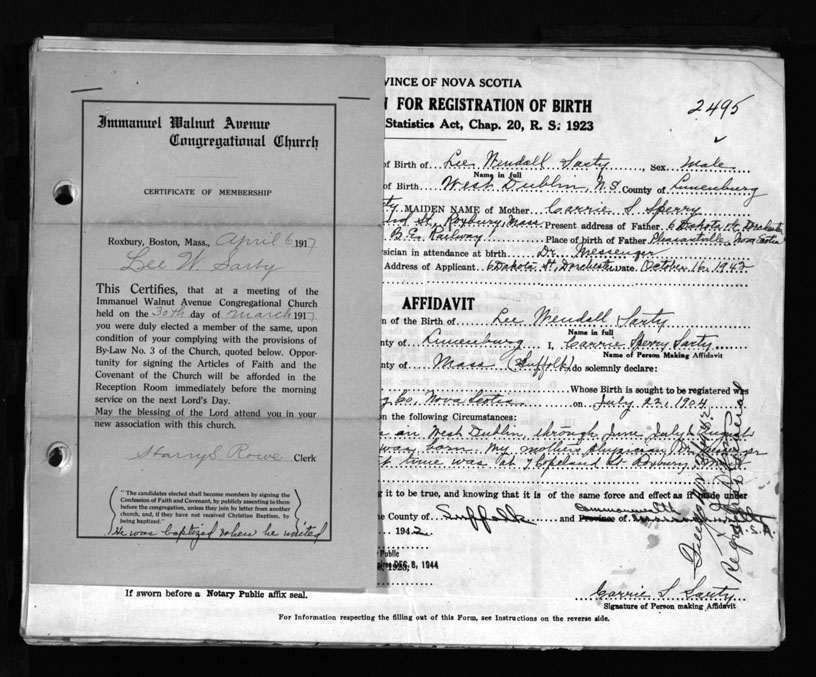 Immanuel Walnut Avenue
Congregational Church
CERTIFICATE OF MEMBERSHIP
Roxbury, Boston, Mass., April 6 1917
Lee W. Sarty
This Certifies, that at a meeting of the
Immanuel Walnut Avenue Congregational Church
held on the 30th day of March 1917
you were duly elected a member of the same, upon
condition of your complying with the provisions of
By-Law No. 3 of the Church, quoted below. Oppor-
tunity for signing the Articles of Faith and the
Covenant of the Church will be afforded in the
Reception Room immediately before the morning
service on the next Lord's Day.
May the blessing of the Lord attend you in your
new association with this church.
Harry S Rowe Clerk
"The candidates elected shall become members by signing the
Confession of Faith and Covenant, by publicly assenting to them
before the congregation, unless they join by letter from another
church, and, if they have not received Christian Baptism, by
being baptized."
He was baptized when he united
VINCE OF NOVA SCOTIA
N FOR REGISTRATION OF BIRTH
2495
Statistics Act, Chap. 20, R. S. 1923
of Birth of Lee Wendall Sarty, Sex Male
Name in full
of Birth West Dublin, N.S. County of Lunenburg
ty MAIDEN NAME of Mother Carrie S Sperry
St, Roxbury, Mass Present address of Father 6 Dakota St. Dorchester
B.E. Railway Place of birth of Father Pleasantville, Nova Scotia
sician in attendance at birth Dr. Messenger
Address of Applicant 6 Dakota St. Dorchester Date October 16, 1942
AFFIDAVIT
n of the Birth of Lee Wendall Sarty
Name in full
nty of Lunenburg I, Carrie Sperry Sarty
Name of Person Making Affidavit
nty of Mass (Suffolk) do solemnly declare:
Whose Birth is sought to be registered was
g Co, Nova Scotia on July 22, 1904
on the following Circumstances:
in West Dublin, through June, July
was born. My mothers physician
time was at 7 Copeland St. Roxbury
g it to be true, and knowing that it is of the same force and effect as if made under
he County of Suffolk and Commonwealth Province of
1942
Public
ires DEC. 8, 1944
Carrie S. Sarty
Signature of Person making Affidavit
Registrar General
If sworn before a Notary Public affix seal.
For Information respecting the filling out of this Form, see Instructions on the reverse side.